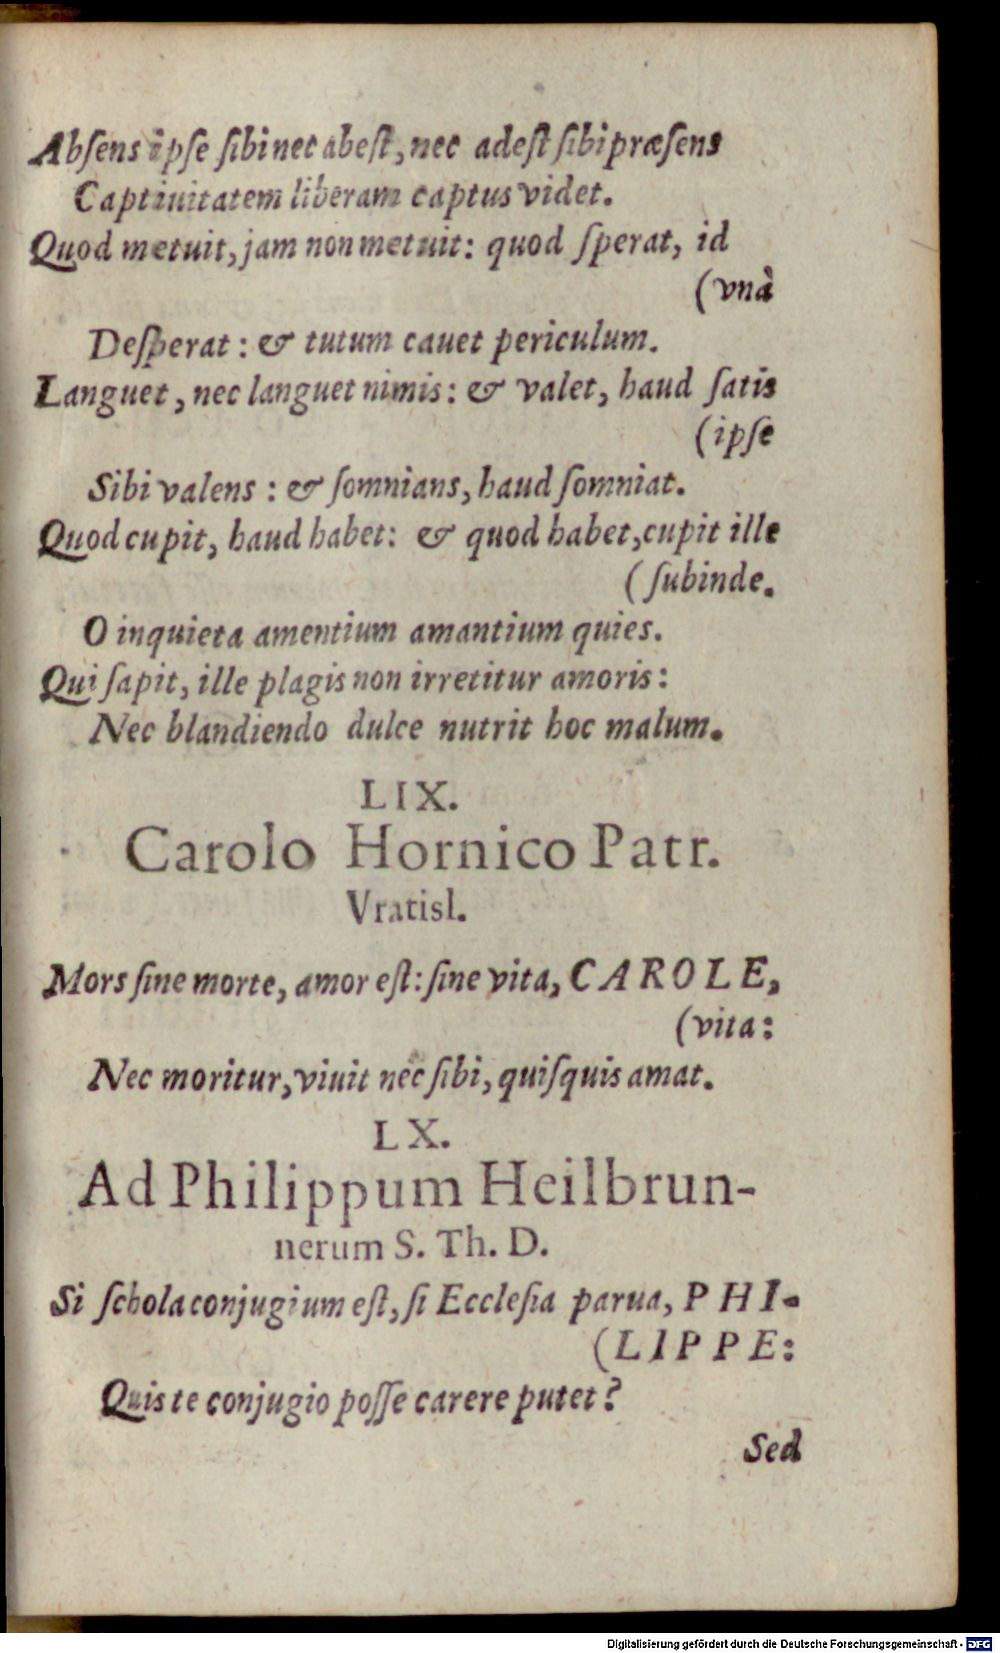 Abſens ipſe ſibi nec abeſt, nec adeſt ſibi præſens
Captiuitatem liberam captus videt.
Quod metuit, jam non metuit: quod ſperat, id
(vnà
Deſperat: & tutum cauet periculum.
Languet, nec languet nimis: & valet, haud ſatis
(ipſe
Sibi valens: & ſomnians, haud ſomniat.
Quod cupit, haud habet: & quod habet, cupit ille
(ſubinde.
O inquieta amentium amantium quies.
Qui ſapit, ille plagis non irretitur amoris:
Nec blandiendo dulce nutrit hoc malum.
LIX.
Carolo Hornico Patr.
Vratisl.
Mors ſine morte, amor eſt: ſine vita, CAROLE,
(vita:
Nec moritur, viuit nec ſibi, quiſquis amat.
LX.
Ad Philippum Heilbrun-
nerum S. Th. D.
Si ſchola conjugium eſt, ſi Eccleſia parua, PHI-
(LIPPE:
Quis te conjugio poſſe carere putet?
Sed
Digitalisierung gefördert durch die Deutsche Forschungsgemeinschaft - DFG